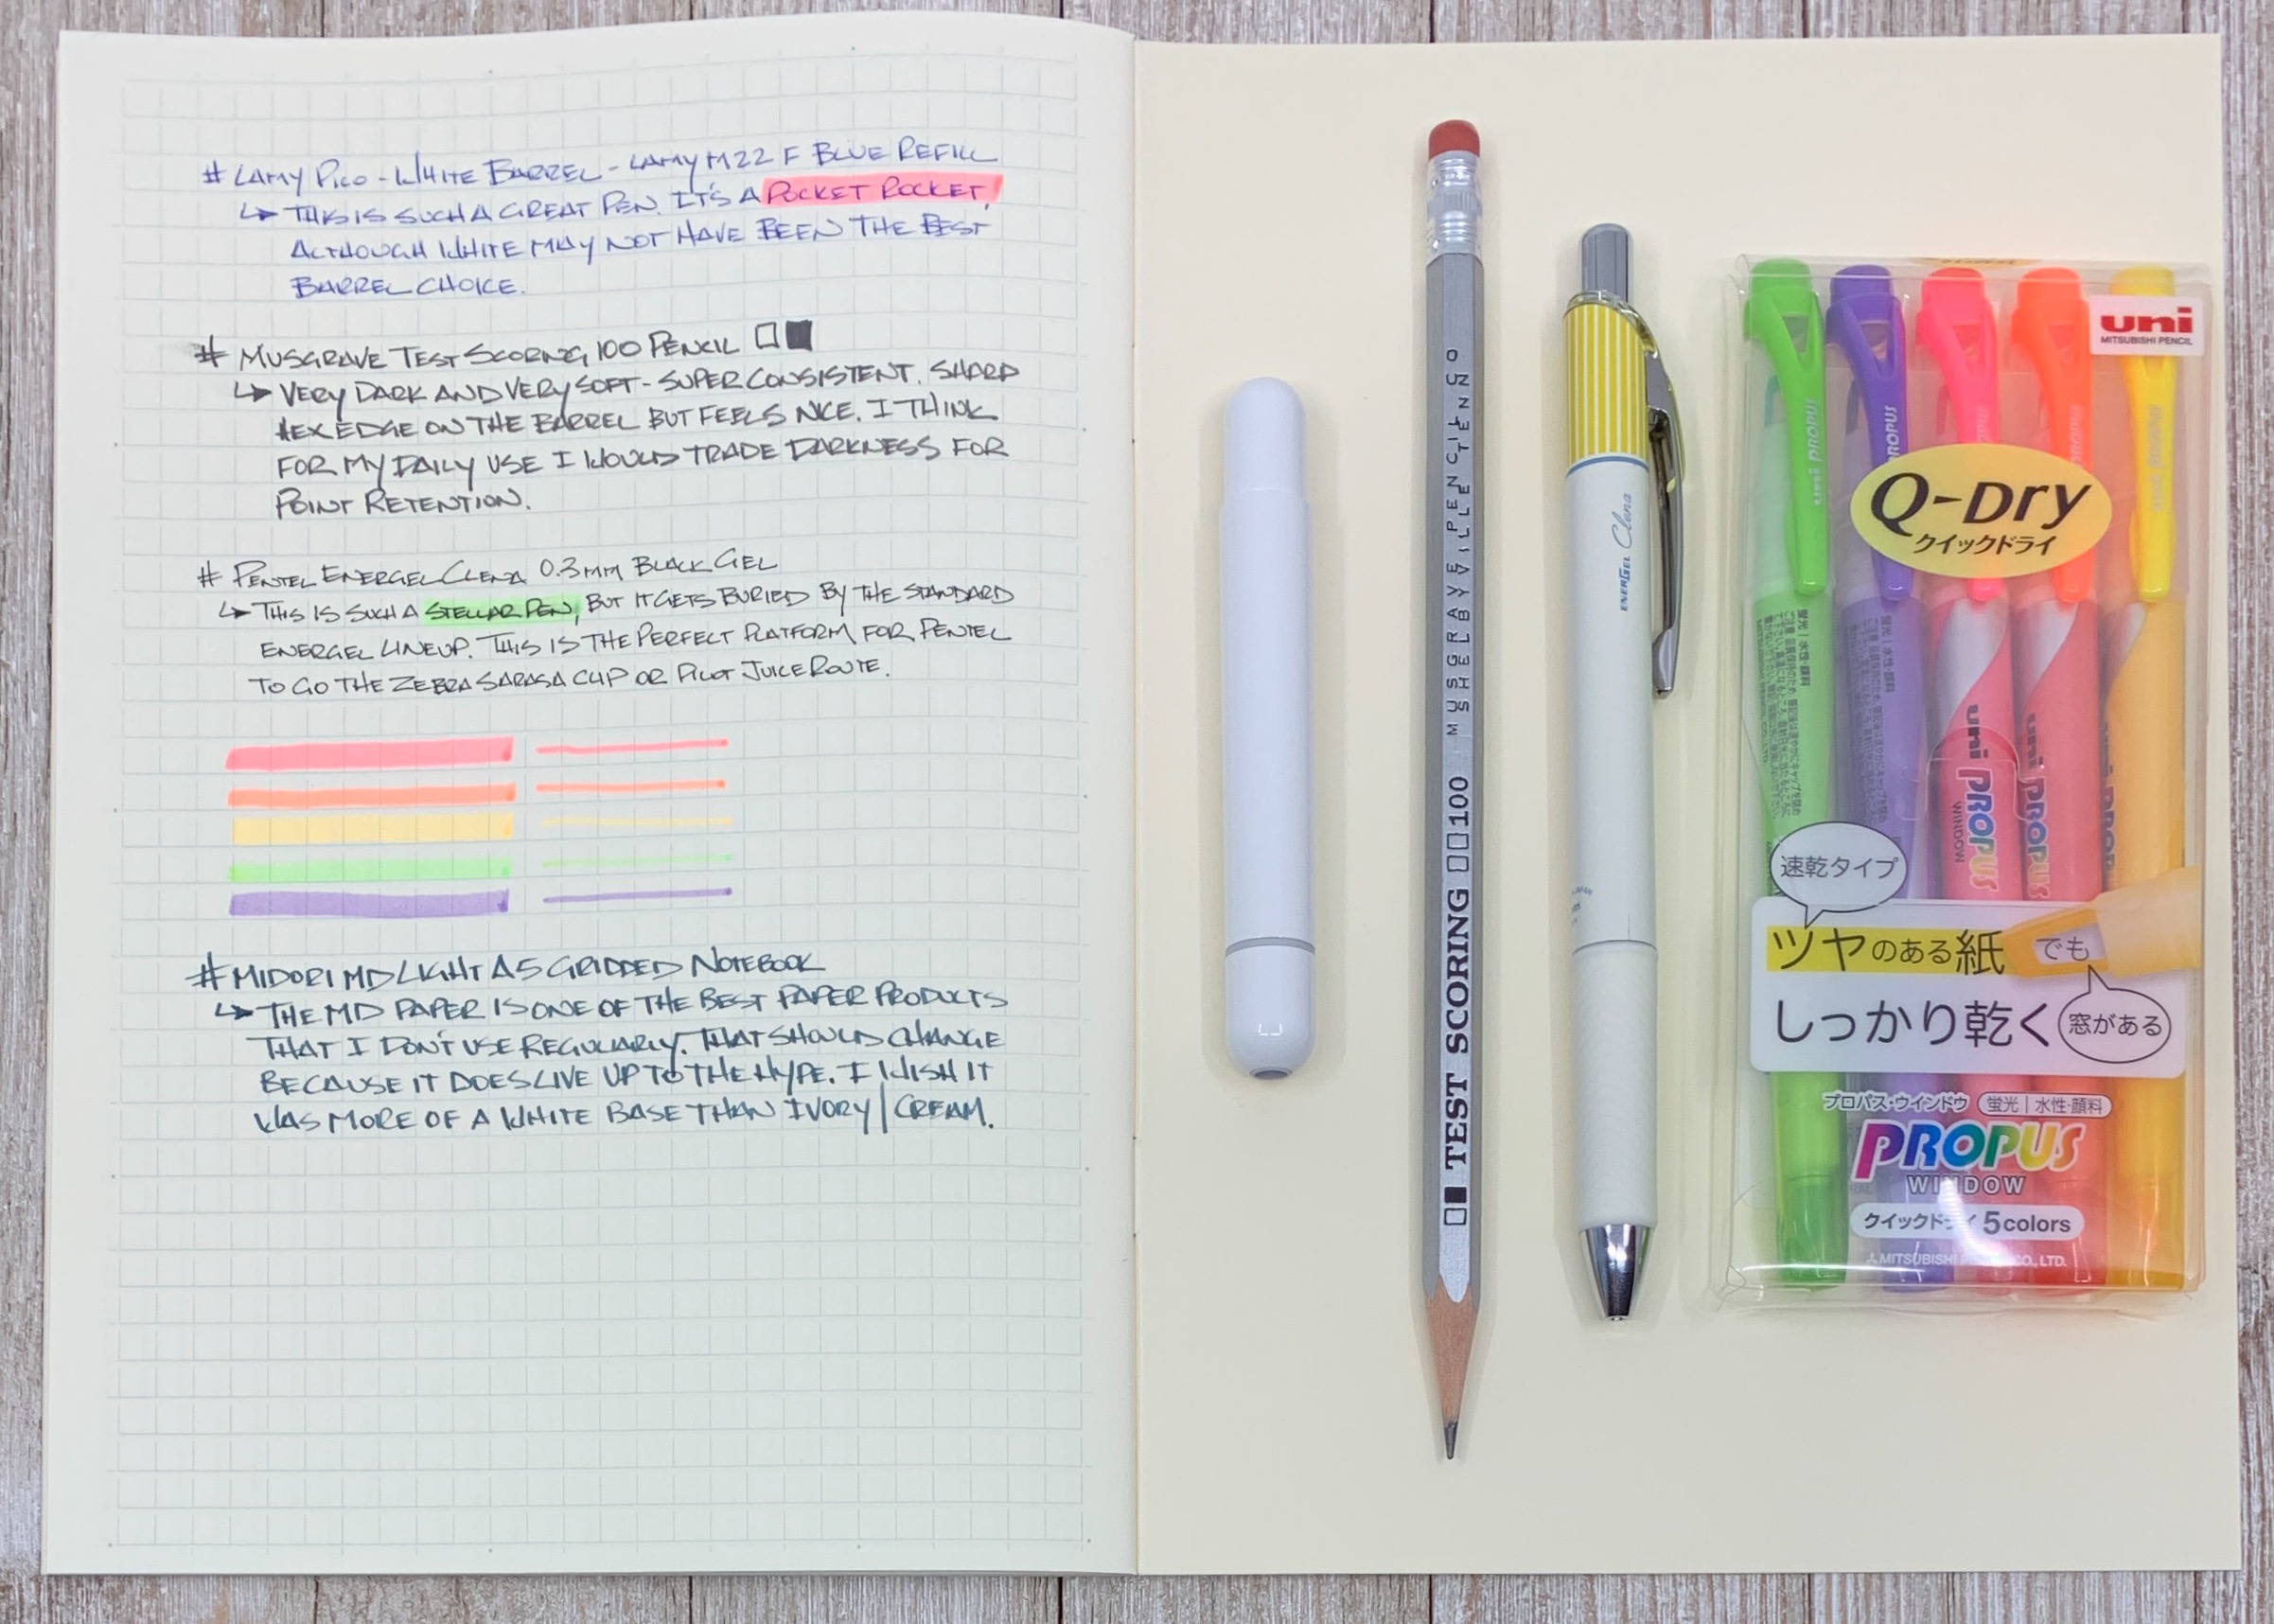 # LAMY PICO - WHITE BARREL - LAMY M22 F BLUE REFILL
↳ THIS IS SUCH A GREAT PEN. IT'S A POCKET ROCKET!
ALTHOUGH WHITE MAY NOT HAVE BEEN THE BEST
BARREL CHOICE.
# MUSGRAVE TEST SCORING 100 PENCIL □■
↳ VERY DARK AND VERY SOFT - SUPER CONSISTENT. SHARP
HEX EDGE ON THE BARREL BUT FEELS NICE. I THINK
FOR MY DAILY USE I WOULD TRADE DARKNESS FOR
POINT RETENTION.
# PENTEL ENERGEL CLENA 0.3MM BLACK GEL
↳ THIS IS SUCH A STELLAR PEN, BUT IT GETS BURIED BY THE STANDARD
ENERGEL LINEUP. THIS IS THE PERFECT PLATFORM FOR PENTEL
TO GO THE ZEBRA SARASA CLIP OR PILOT JUICE ROUTE.
# MIDORI MD LIGHT A5 GRIDDED NOTEBOOK
↳ THE MD PAPER IS ONE OF THE BEST PAPER PRODUCTS
THAT I DON'T USE REGULARLY. THAT SHOULD CHANGE
BECAUSE IT DOES LIVE UP TO THE HYPE. I WISH IT
WAS MORE OF A WHITE BASE THAN IVORY/CREAM.
□■ TEST SCORING □□100
MUSGRAVE PENCIL CO
SHELBYVILLE TENN
ENERGEL Clena
JAPAN
uni
MITSUBISHI PENCIL
uni PROPUS
PROPUS
uni PROPUS
Q-Dry
クイックドライ
蛍光｜水性・顔料
uni PROPUS
WINDOW
uni PROPUS
速乾タイプ
ツヤのある紙でも
しっかり乾く
窓がある
プロパス・ウインドウ 蛍光｜水性・顔料
PROPUS
WINDOW
クイックドライ 5colors
MITSUBISHI PENCIL CO., LTD.